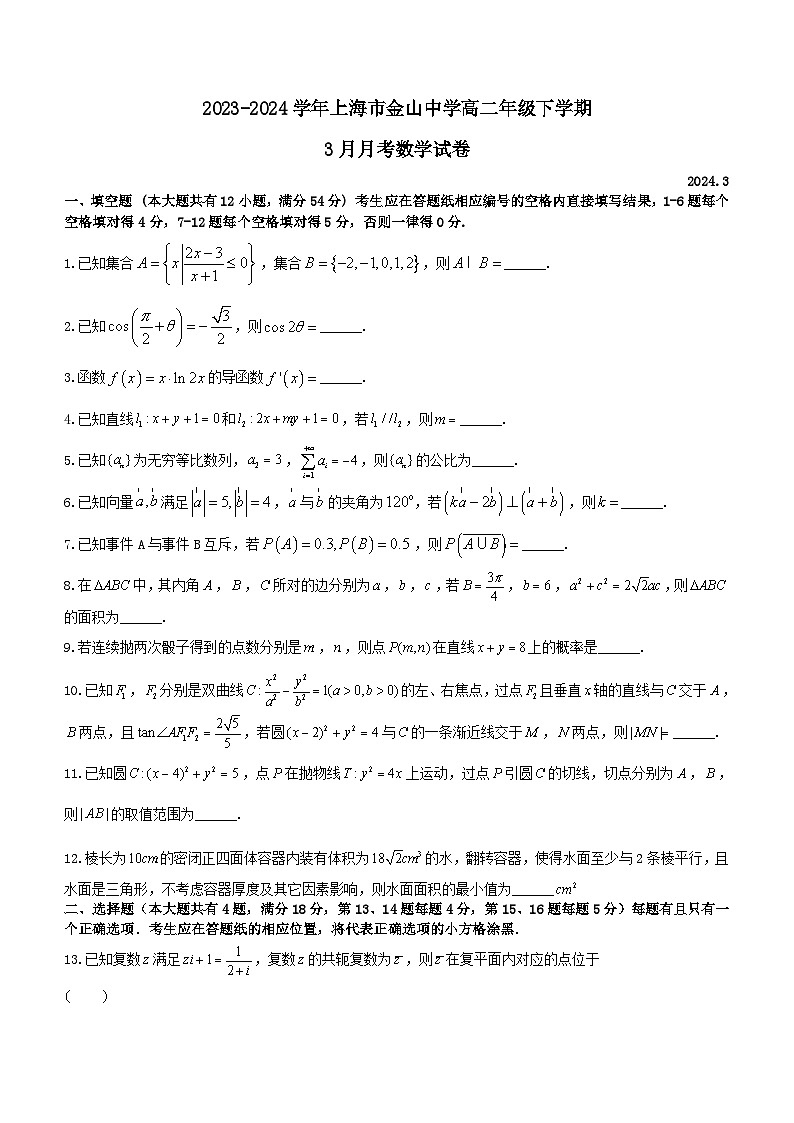 2023-2024 学年上海市金山中学高二年级下学期
3 月月考数学试卷
2024.3
一、填空题 (本大题共有 12 小题, 满分 54 分) 考生应在答题纸相应编号的空格内直接填写结果, 1-6 题每个
空格填对得 4 分, 7-12 题每个空格填对得 5 分, 否则一律得 0 分.
1.已知集合 A = { x | (2x−3)/(x+1) ≤ 0 } ,集合 B = {−2,−1,0,1,2} ,则 A I B = ______.
2.已知 cos(π/2 + θ) = −√3/2 ,则 cos 2θ = ______.
3.函数 f(x) = x·ln 2x 的导函数 f '(x) = ______.
4.已知直线 l₁ : x + y + 1 = 0 和 l₂ : 2x + my + 1 = 0 ,若 l₁ // l₂ ,则 m = ______.
5.已知{aₙ}为无穷等比数列, a₂ = 3 , ∑_{i=1}^{+∞} aᵢ = −4 ,则{aₙ}的公比为______.
6.已知向量 a , b 满足 |a| = 5, |b| = 4 , a 与 b 的夹角为 120° ,若 (ka − 2b) ⊥ (a + b) ,则 k = ______.
7.已知事件 A 与事件 B 互斥, 若 P(A) = 0.3, P(B) = 0.5 ,则 P(\overline{A∪B}) = ______.
8.在 ΔABC 中,其内角 A , B , C 所对的边分别为 a , b , c ,若 B = 3π/4 , b = 6 , a² + c² = 2√2ac ,则 ΔABC
的面积为______.
9.若连续抛两次骰子得到的点数分别是 m , n ,则点 P(m,n) 在直线 x + y = 8 上的概率是______.
10.已知 F₁ , F₂ 分别是双曲线 C : x²/a² − y²/b² = 1(a > 0, b > 0) 的左、右焦点,过点 F₂ 且垂直 x 轴的直线与 C 交于 A ,
B 两点,且 tan∠AF₁F₂ = 2√5/5 ,若圆 (x − 2)² + y² = 4 与 C 的一条渐近线交于 M , N 两点,则 |MN| = ______.
11.已知圆 C : (x − 4)² + y² = 5 ,点 P 在抛物线 T : y² = 4x 上运动,过点 P 引圆 C 的切线,切点分别为 A , B ,
则 |AB| 的取值范围为______.
12.棱长为 10cm 的密闭正四面体容器内装有体积为 18√2cm³ 的水,翻转容器,使得水面至少与 2 条棱平行,且
水面是三角形,不考虑容器厚度及其它因素影响,则水面面积的最小值为______cm²
二、选择题（本大题共有 4 题, 满分 18 分, 第 13、14 题每题 4 分, 第 15、16 题每题 5 分）每题有且只有一
个正确选项. 考生应在答题纸的相应位置, 将代表正确选项的小方格涂黑.
13.已知复数 z 满足 zi + 1 = 1/(2 + i) ,复数 z 的共轭复数为 z̄ ,则 z̄ 在复平面内对应的点位于
( )